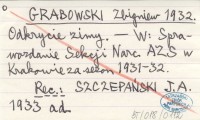 GRABOWSKI Zbigniew 1932.
Odkrycie zimy. — W: Spra-
wozdanie Sekcji Narc. AZS w
Krakowie za sezon 1931-32.
Rec.: SZCZEPAŃSKI J.A.
1933 ad.